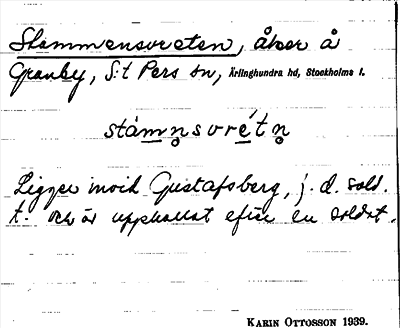 Stammensvreten, åker å
Granby, S:t Pers sn, Ärlinghundra hd, Stockholms l.
stámn̥svrétn̥
Ligger invid Gustafsberg, j. d. sold.
t. och är uppkallat efter en soldat.
KARIN OTTOSSON 1939.